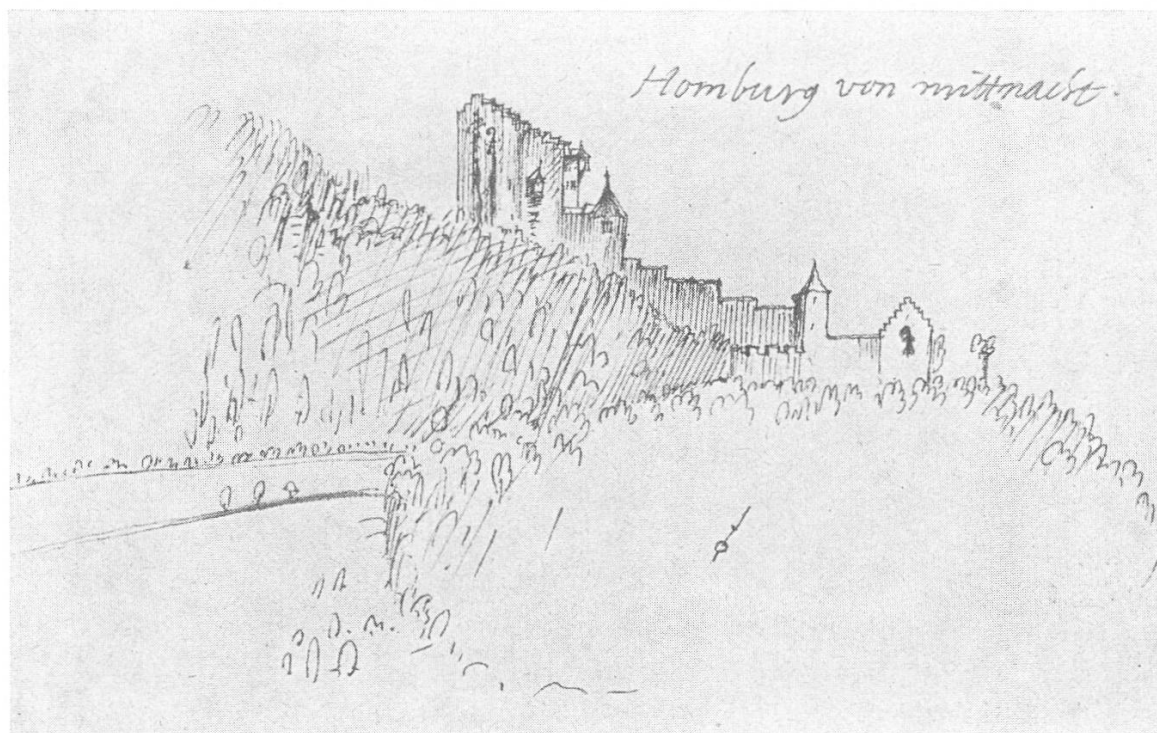 Homburg von mittnacht.